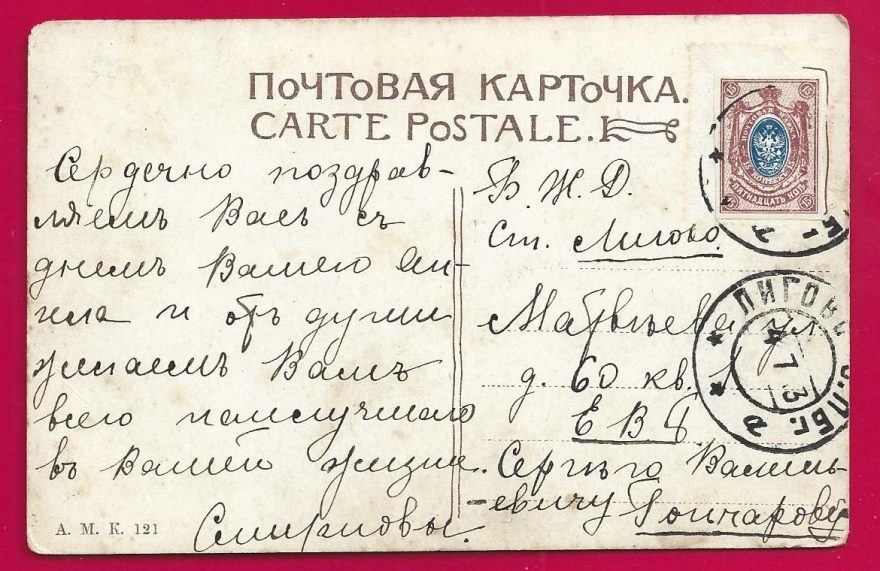 ПОЧТОВАЯ КАРТОЧКА.
CARTE POSTALE.
Сердечно поздрав-
ляемъ Васъ съ
днемъ Вашего Ан-
гела и отъ души
желаемъ Вамъ
всего наилучшаго
въ Вашей жизни.
Смирновы.
А. М. К. 121
Б. Ж. Д.
Ст. Лигово
Матвѣева ул
д. 60 кв. 1
Е В Б
Сергѣю Василь-
-евичу Гончарову
15 15
ПЯТНАДЦАТЬ КОП
15 15
ЛИГОВО С.ПБГ.
4 7 13